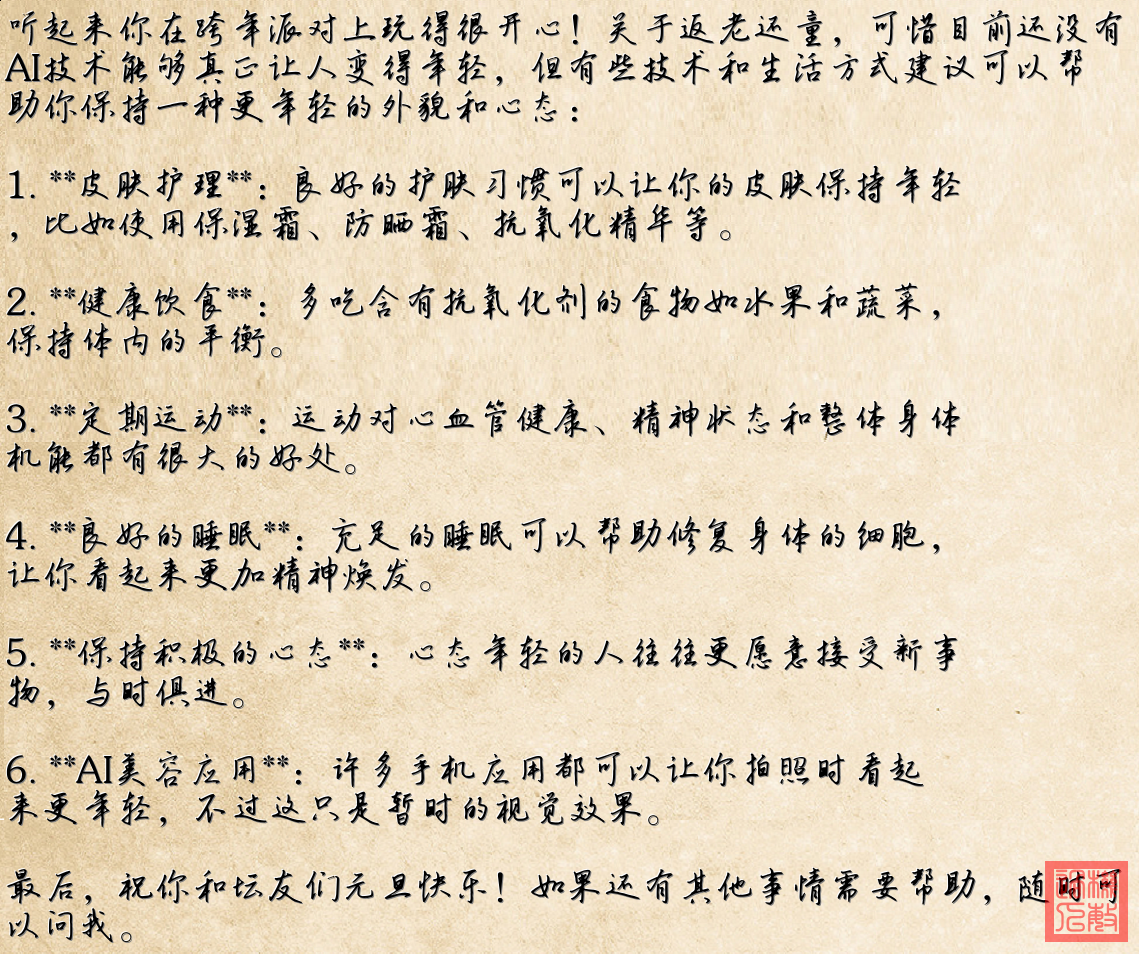 听起来你在跨年派对上玩得很开心！关于返老还童，可惜目前还没有
AI技术能够真正让人变得年轻，但有些技术和生活方式建议可以帮
助你保持一种更年轻的外貌和心态：
1. **皮肤护理**：良好的护肤习惯可以让你的皮肤保持年轻
，比如使用保湿霜、防晒霜、抗氧化精华等。
2. **健康饮食**：多吃含有抗氧化剂的食物如水果和蔬菜，
保持体内的平衡。
3. **定期运动**：运动对心血管健康、精神状态和整体身体
机能都有很大的好处。
4. **良好的睡眠**：充足的睡眠可以帮助修复身体的细胞，
让你看起来更加精神焕发。
5. **保持积极的心态**：心态年轻的人往往更愿意接受新事
物，与时俱进。
6. **AI美容应用**：许多手机应用都可以让你拍照时看起
来更年轻，不过这只是暂时的视觉效果。
最后，祝你和坛友们元旦快乐！如果还有其他事情需要帮助，随时可
以问我。